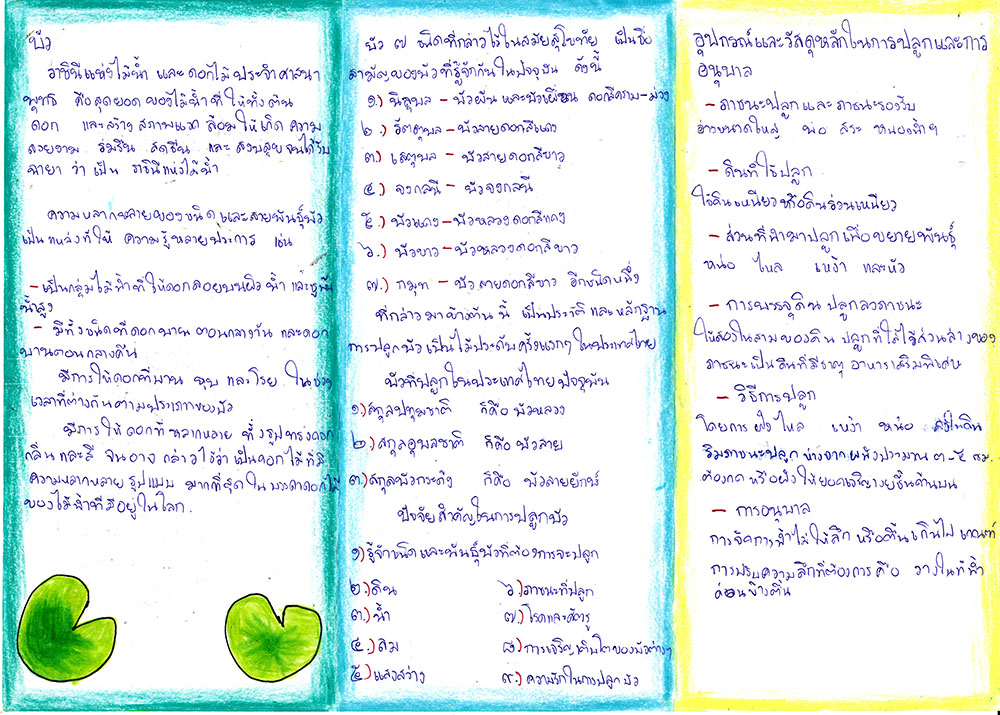 บัว
ราชินีแห่งไม้น้ำ และดอกไม้ประจำศาสนา
พุทธ คือสุดยอดของไม้น้ำที่ให้ทั้งต้น
ดอก และสร้างสภาพแวดล้อมให้เกิดความ
สวยงาม ร่มรื่น สดชื่น และสงบสุขจนได้รับ
ฉายา ว่าเป็น ราชินีแห่งไม้น้ำ
ความหลากหลายของชนิดและสายพันธุ์บัว
เป็นแหล่งที่ให้ ความรู้หลายประการ เช่น
- เป็นกลุ่มไม้น้ำที่ให้ดอกลอยบนผิวน้ำ และชูพ้น
น้ำสูง
- มีทั้งชนิดที่ดอกบานตอนกลางวัน และดอก
บานตอนกลางคืน
มีการให้ดอกที่บาน หุบ และโรย ในช่วง
เวลาที่ต่างกันตามประเภทของบัว
มีการให้ดอกที่หลากหลาย ทั้งรูปทรงดอก
กลิ่นและสี จนอาจกล่าวได้ว่าเป็นดอกไม้ที่มี
ความหลากหลาย รูปแบบ มากที่สุดในบรรดาดอกไม้
ของไม้น้ำที่มีอยู่ในโลก.
บัว ๗ ชนิดที่กล่าวไว้ในสมัยสุโขทัย เป็นชื่อ
สามัญของบัวที่รู้จักกันในปัจจุบัน ดังนี้
๑.) นิลุบล - บัวผันและบัวเผื่อน ดอกสีคราม-ม่วง
๒.) รัตตุบล - บัวสายดอกสีแดง
๓.) เสตุบล - บัวสายดอกสีขาว
๔.) จงกลนี - บัวจงกลนี
๕.) บัวแดง - บัวหลวงดอกสีแดง
๖.) บัวขาว - บัวหลวงดอกสีขาว
๗.) กมุท - บัวสายดอกสีขาว อีกชนิดหนึ่ง
ที่กล่าวมาข้างต้นนี้ เป็นประวัติและหลักฐาน
การปลูกบัวเป็นไม้ประดับครั้งแรกๆในประเทศไทย
บัวที่ปลูกในประเทศไทยปัจจุบัน
๑.)สกุลปทุมชาติ ก็คือ บัวหลวง
๒.)สกุลอุบลชาติ ก็คือ บัวสาย
๓.)สกุลบัวกระด้ง ก็คือ บัวสายยักษ์
ปัจจัยสำคัญในการปลูกบัว
๑)รู้จักชนิดและพันธุ์บัวที่ต้องการจะปลูก
๒.)ดิน ๖.)ภาชนะที่ปลูก
๓.)น้ำ ๗.)โรคและศัตรู
๔.)ลม ๘.)การเจริญเติบโตของบัวต่างๆ
๕)แสงสว่าง ๙.)ความรักในการปลูกบัว
อุปกรณ์และวัสดุหลักในการปลูกและการ
อนุบาล
- ภาชนะปลูกและภาชนะรองรับ
อ่างขนาดใหญ่ บ่อ สระ หนองน้ำฯ
- ดินที่ใช้ปลูก
ใช้ดินเหนียวหรือดินร่วนเหนียว
- ส่วนที่นำมาปลูกเพื่อขยายพันธุ์
หน่อ ไหล เหง้า และหัว
- การบรรจุดินปลูกลงภาชนะ
ให้สองในสามของดินปลูกที่ใส่ไว้ส่วนล่างของ
ภาชนะเป็นดินที่มีธาตุ อาหารเสริมพิเศษ
- วิธีการปลูก
โดยการฝังไหล เหง้า หน่อ ลงในดิน
ริมภาชนะปลูก ห่างจากผนังประมาณ ๓-๕ ซม.
ต้องกดหรือฝังให้ยอดเจริญงอชี้ขึ้นด้านบน
- การอนุบาล
การจัดการน้ำไม่ให้ลึก หรือตื้นเกินไป เกณฑ์
การปรับความลึกที่ต้องการคือ วางในที่น้ำ
ค่อนข้างตื้น